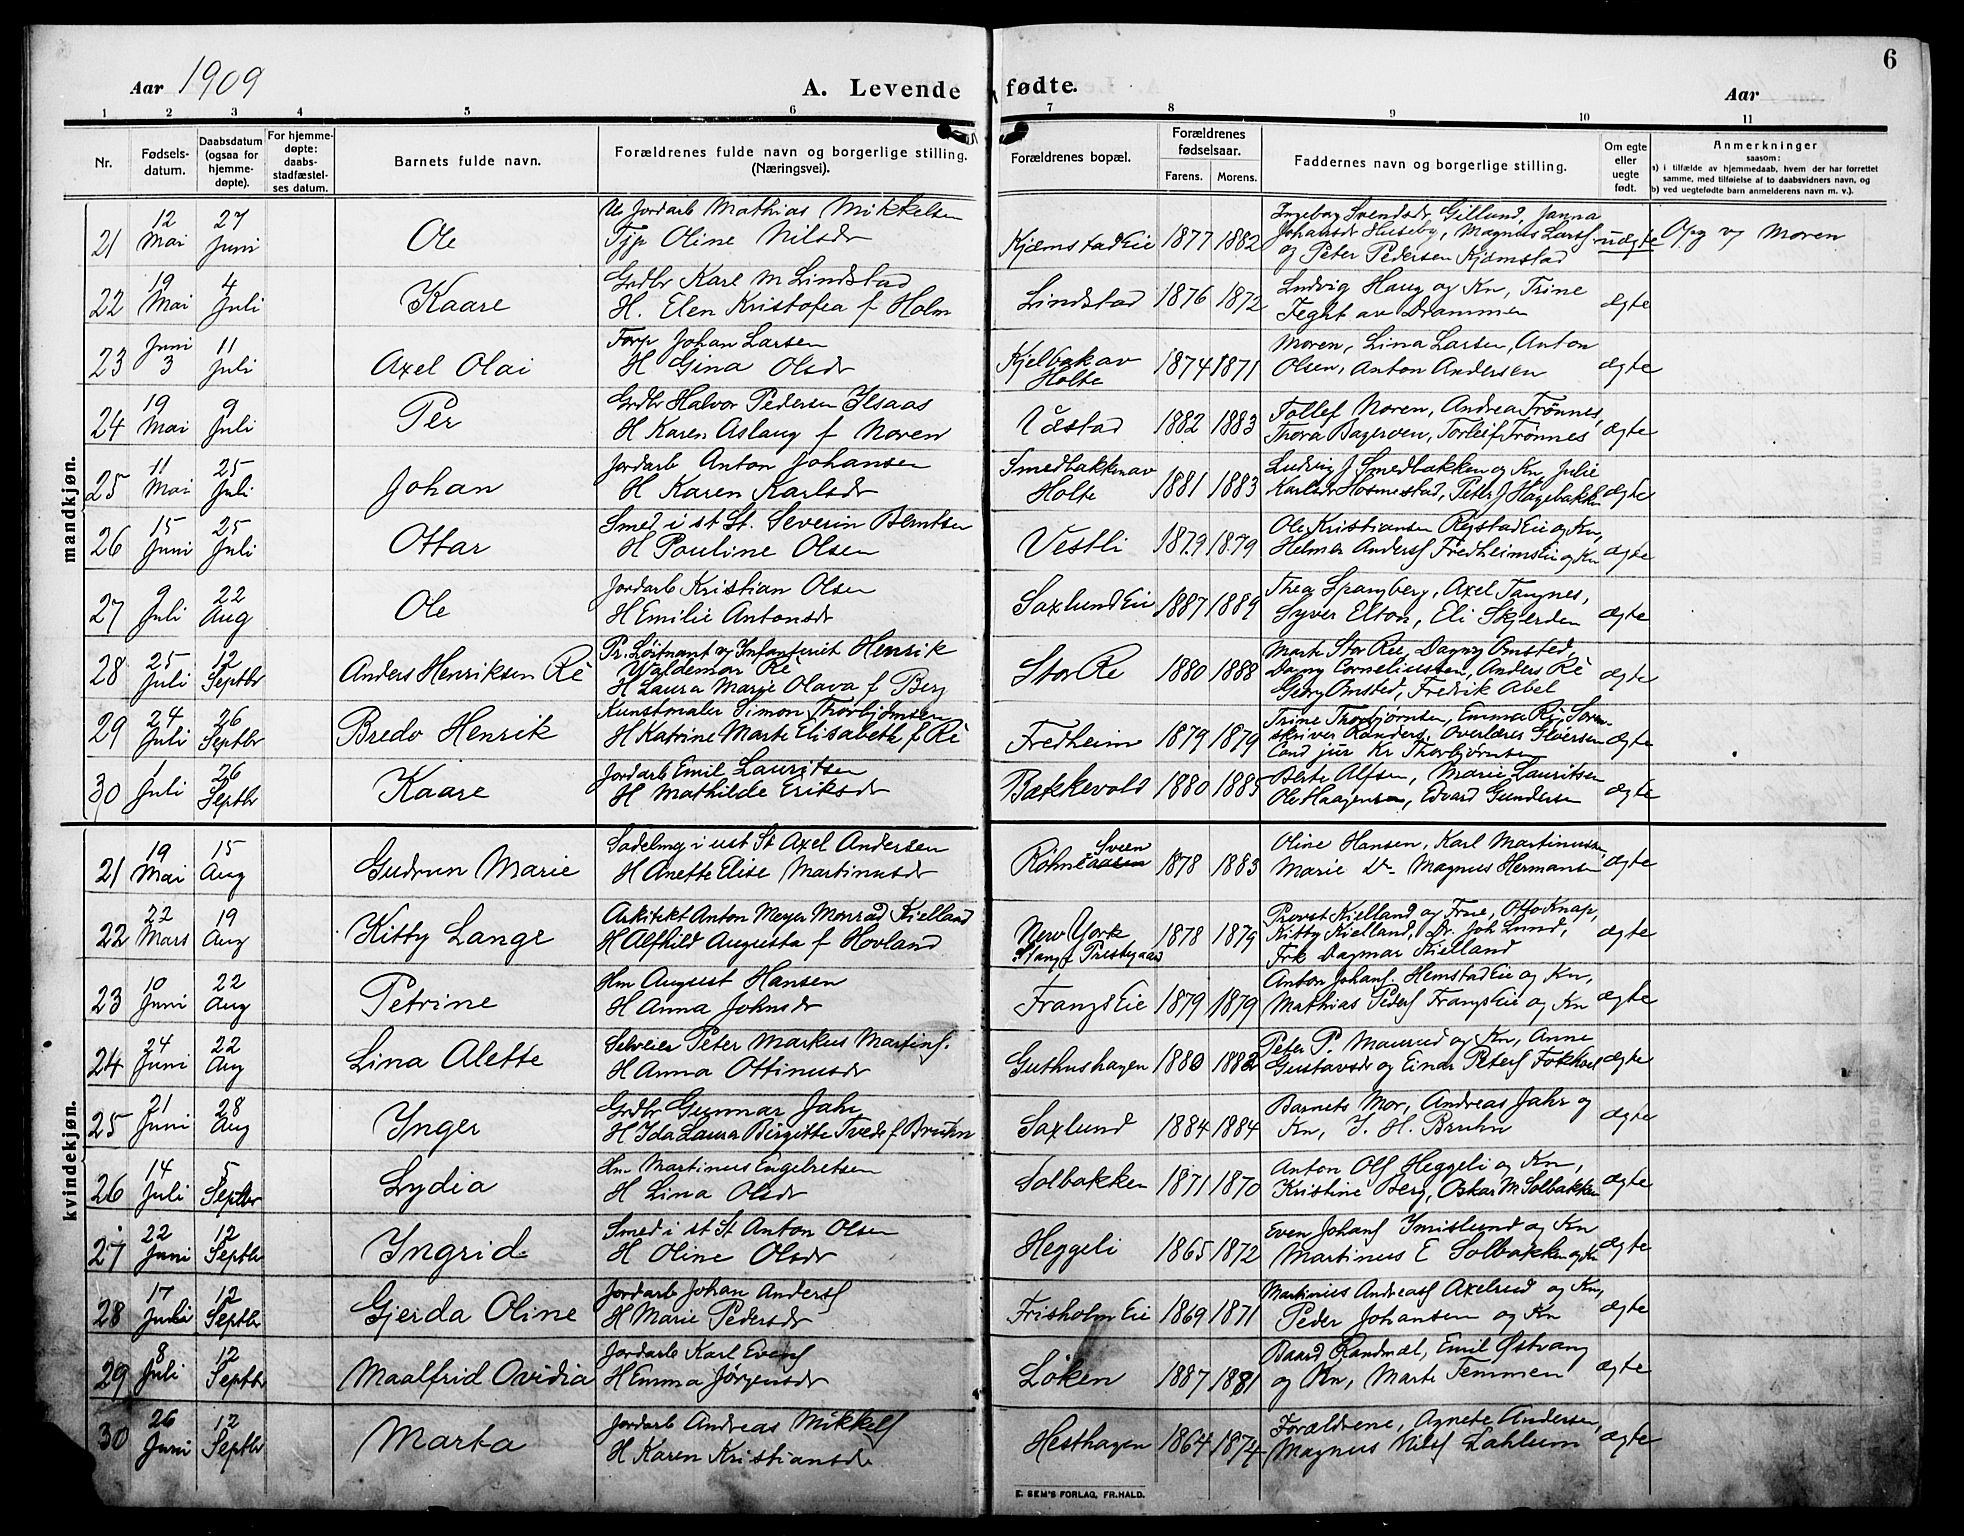 6
Aar 1909
A. Levende fødte.
Aar
1 2 3 4 5 6 7 8 9 10 11
Nr.
Fødsels-
datum.
Daabsdatum
(ogsaa for
hjemme-
døpte).
For hjemme-
døpte:
daabs-
stadfæstel-
ses datum.
Barnets fulde navn.
Forældrenes fulde navn og borgerlige stilling.
(Næringsvei).
Forældrenes bopæl.
Forældrenes
fødselsaar.
Farens. Morens.
Faddernes navn og borgerlige stilling.
Om egte
eller
uegte
født.
Anmerkninger
saasom:
a) i tilfælde av hjemmedaab, hvem der har forrettet
samme, med tilføielse af to daabsvidners navn, og
b) ved uegtefødte barn anmelderens navn m. v.).
mandkjøn.
21 12 Mai 27 Juni Ole
Jordarb Mathias Mikkelsen
Oline Nilsdr
Kjæmstad Eie 1877 1882
Ingeborg Svendsdr Gillund, Janna
Johansdr Huseby, Magnus Larsf
og Peter Pedersen Kjæmstad
uægte Opg v Moren
22 19 Mai 4 Juli Kaare
Grdbr Karl M Lindstad
H. Elen Kristofea f Holm
Lindstad 1876 1872
Ludvig Haug og Kn, Trine
Feght av Drammen
ægte
23 Juni 3 11 Juli Axel Olai
Johan Larsen
H Gina Olsdr
Kjelbæk av
Holte 1874 1871
Moren, Lina Larsen, Anton
Olsen, Anton Andersen
ægte
24 19 Mai 9 Juli Per
Grdbr Halvor Pedersen Ilsaas
H Karen Aslaug f Noren
1882 1883
Tollef Noren, Andrea Trønnes,
Thora Bagerven, Torleif Trønnes
ægte
25 11 Mai 25 Juli Johan
Jordarb Anton Johansen
H Karen Karlsdr
Smedbakken av
Holte 1881 1883
Ludvig J Smedbakken og Kn, Julie
Karlsdr Hosmestad, Peter J Hagebakken
ægte
26 15 Juni 25 Juli Ottar
Smed i st St. Severin Berntsen
H Pauline Olsen
Vestli 1879 1879
Ole Kristiansen Rystad Eie og Kn,
Helmer Andersf Fredheimseie og Kn
ægte
27 9 Juli 22 Aug Ole
Jordarb Kristian Olsen
H Emilie Antonsdr
Saxlund Eie 1887 1889
Thea Spangberg, Axel Tangnes,
Syver Elton, Eli Skjerden
ægte
28 25 Juli 12 Septbr Anders Henriksen Rè
Pr. Løitnant v Infanteriet Henrik
Waldemar Rè
H Laura Marie Olava f Berg
Stor Re 1880 1888
Marte Stor Ree, Dagny Omsted,
Dagny Corneliussen, Anders Rè
Georg Omsted, Fredrik Abel
ægte
29 24 Juli 26 Septbr Bredo Henrik
Kunstmaler Simon Thorbjørnsen
H Katrine Marte Elisabeth f Rè
Fredheim 1879 1879
Trine Thorbjørnsen, Emma Rè, Soren-
skriver Randers, Overlærer Siversen
Cand jur Kr Thorbjørnsen
ægte
30 1 Juli 26 Septbr Kaare
Jordarb Emil Lauritsen
H Mathilde Eriksdr
Bækkevold 1880 1885
Berte Alfsen, Marie Lauritsen
Ole Haagensen, Edvard Gundersen
ægte
kvindekjøn.
21 19 Mai 15 Aug Gudrun Marie
Sadelmg i ust St Axel Andersen
H Anette Elise Martinusdr
Sveen
1878 1883
Oline Hansen, Karl Martinussen
Marie Do Magnus Hermansen
ægte
22 22 Mars 19 Aug Kitty Lange
Arkitekt Anton Meyer Monrad Kielland
H Alfhild Augusta f Hovland
New York
Stange Prestegaard 1878 1879
Provst Kielland og Frue, Otto Knap,
Kitty Kielland, Dr. Joh Lund,
Frk Dagmar Kielland
ægte
23 10 Juni 22 Aug Petrine
Hm August Hansen
H Anna Johnsdr
Frangs Eie 1879 1879
Anton Johansf Hemstad Eie og Kn,
Mathias Pedersf Frangs Eie og Kn
ægte
24 24 Juni 22 Aug Lina Alette
Selveier Peter Markus Martinsf.
H Anna Ottinusdr
Guthushagen 1880 1882
Peter P. Maurud og Kn, Anne
Gustavsdr og Einar Petersf Fokhol
ægte
25 21 Juni 28 Aug Inger
Grdbr Gunnar Jahr
H Ida Laura Birgitte Tvede f Bruhn
Saxlund 1884 1884
Barnets Mor, Andreas Jahr og
Kn, J. H. Bruhn
ægte
26 14 Juli 5 Septbr Lydia
Hm Martinus Engebretsen
H Lina Olsdr
Solbakken 1871 1870
Anton Olsf Heggeli og Kn,
Kristine Berg, Oskar M Solbakken
ægte
27 22 Juni 12 Septbr Ingrid
Smed i st St Anton Olsen
H Oline Olsdr
Heggeli 1865 1872
Even Johansf Imislund og Kn
Martinus E Solbakken og Kn
ægte
28 17 Juli 12 Septbr Gjerda Oline
Jordarb Johan Andersf
H Marie Pedersdr
Frisholm Eie 1869 1871
Martinius Andreasf Axelrud og Kn,
Peder Johansen og Kn
ægte
29 8 Juli 12 Septbr Maalfrid Ovidia
Jordarb Karl Evensf
H Emma Jørgensdr
Løken 1887 1881
Baard Randmæl, Emil Østvang
og Kn, Marte Temmen
ægte
30 26 Juni 12 Septbr Marta
Jordarb Andreas Mikkelsf
H Karen Kristiansdr
Hesthagen 1864 1874
Forældrene, Agnete Andersen,
Magnus Nilsf Lahlum
ægte
E. SEM'S FORLAG, FR.HALD.